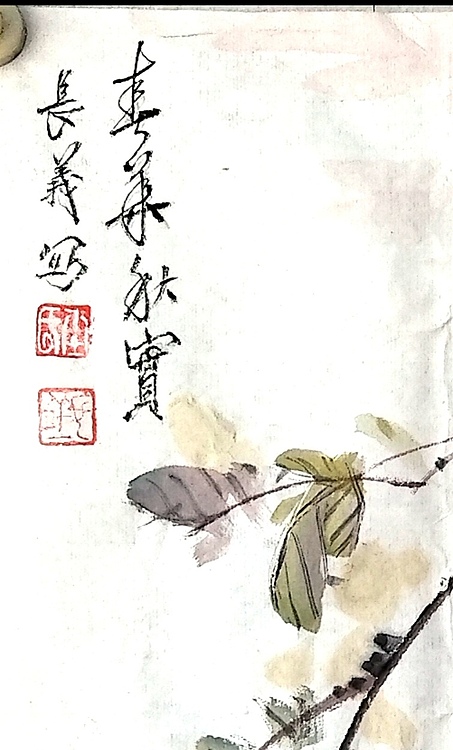 春華秋實
長義寫